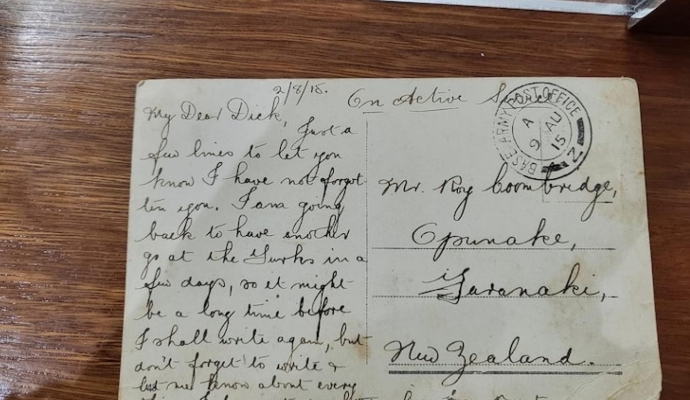 2/8/15.
My Dear Dick,
Just a
few lines to let you
know I have not forgot
ten you. I am going
back to have another
go at the Turks in a
few days, so it might
be a long time before
I shall write again, but
don't forget to write &
let me know about every
On Active Service
BASE ARMY POST OFFICE
A
9 AU
15
Z
Mr. Roy Coombridge,
Opunake,
Taranaki,
New Zealand.